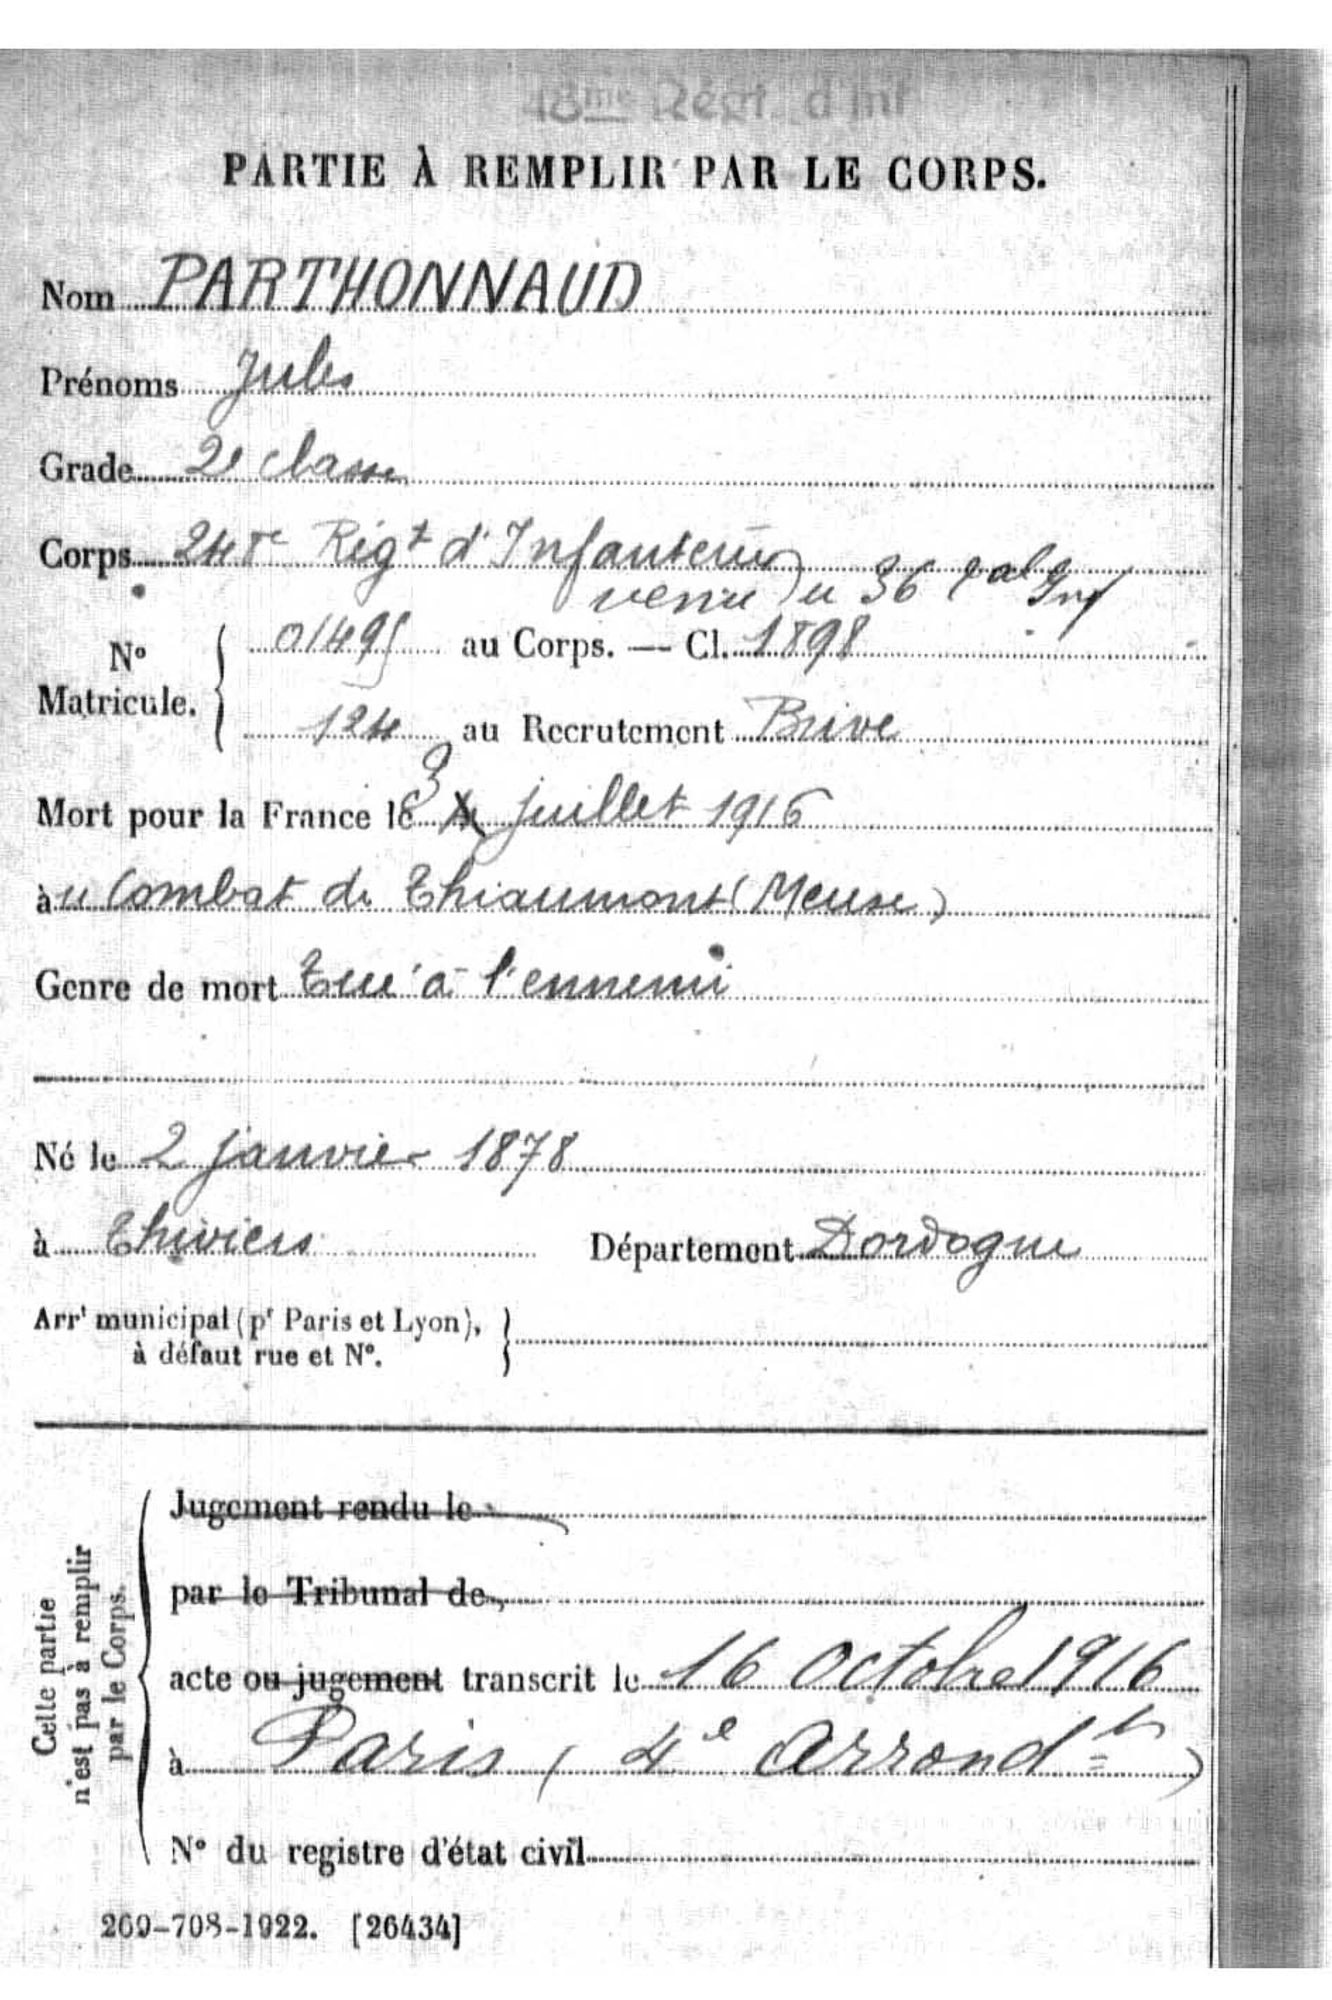 48me Régt d'Inf
PARTIE À REMPLIR PAR LE CORPS.
Nom PARTHONNAUD
Prénoms Jules
Grade 2e classe
Corps 248e Régt d'Infanterie
venu du 36 Inf
No Matricule. 01495 au Corps. — Cl. 1898
124 au Recrutement Brive
Mort pour la France le 3 juillet 1916
au Combat de Thiaumont (Meuse)
Genre de mort Tué à l'ennemi
Né le 2 janvier 1878
à Thiviers Département Dordogne
Arrt municipal (pr Paris et Lyon),
à défaut rue et N°.
Cette partie
n'est pas à remplir
par le Corps.
Jugement rendu le
par le Tribunal de
acte ou jugement transcrit le 16 Octobre 1916
à Paris (4e Arrondt)
N° du registre d'état civil
269-708-1922. [26434]